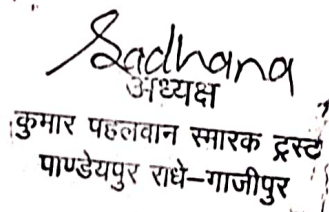 Sadhana
अध्यक्ष
कुमार पहलवान स्मारक ट्रस्ट
पाण्डेयपुर राधे-गाजीपुर